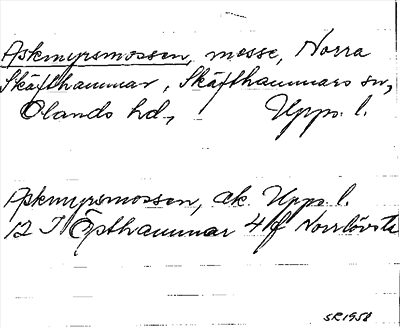 Askmyrsmossen, mosse, Norra
Skäfthammar, Skäfthammars sn,
Olands hd, Upps. l.
Askmyrsmossen, ek. Upps l.
12 I Öpthammar 4f Norrlövsta
SR1958